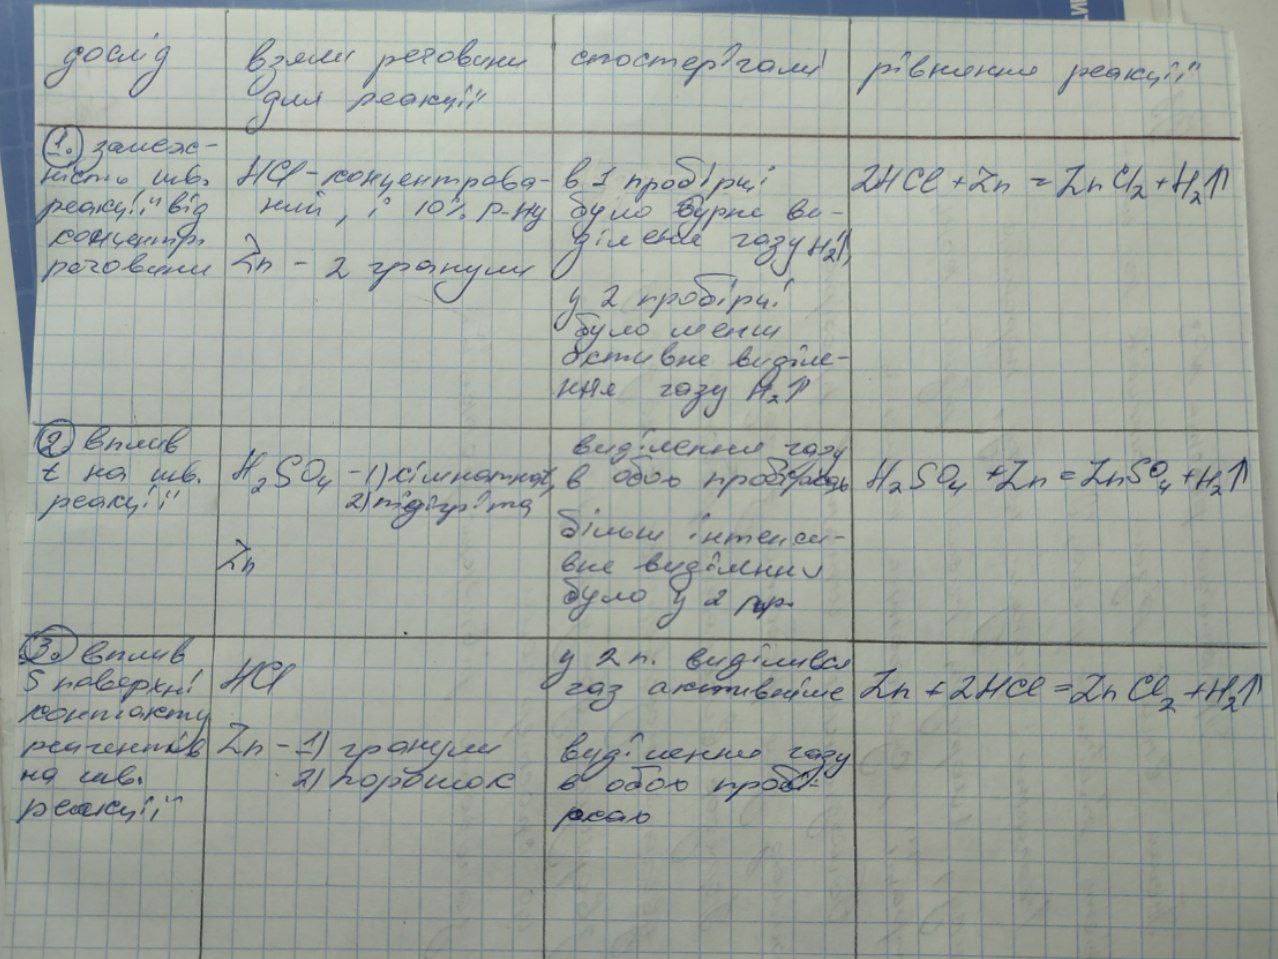 дослід
взяли речовини
для реакції
спостерігали
рівняння реакції
1. залеж-
ність шв.
реакції від
концентр.
речовини
HCl - концентрова-
ний, і 10% р-ну
Zn - 2 гранули
в 1 пробірці
було бурне ви-
ділення газу H₂↑,
у 2 пробірці
було менш
активне виділе-
ння газу H₂↑
2HCl + Zn = ZnCl₂ + H₂↑
2 вплив
t на шв.
реакції
H₂SO₄ - 1) кімнатна t,
2) підігріта
Zn
виділення газу
в обох пробірках
більш інтенси-
вне виділення
було у 2 пр.
H₂SO₄ + Zn = ZnSO₄ + H₂↑
3. вплив
S поверхні
контакту
реагентів
на шв.
реакції
HCl
Zn - 1) гранули
2) порошок
у 2 п. виділився
газ активніше
виділення газу
в обох пробі-
рках
Zn + 2HCl = ZnCl₂ + H₂↑